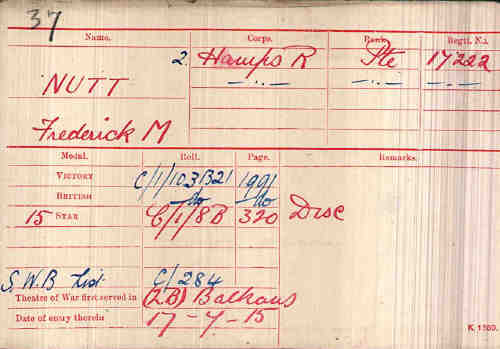 37
Name. Corps. Rank. Regtl. No.
2. Hamps R Pte 17222
NUTT -"- -"- -"-
Frederick M
Medal. Roll. Page. Remarks.
VICTORY C/1/103B21 1991
BRITISH do do
15 STAR C/1/8B 320 Disc
S.W.B List C/284
Theatre of War first served in (2B) Balkans
Date of entry therein 17-7-15
K 1380.